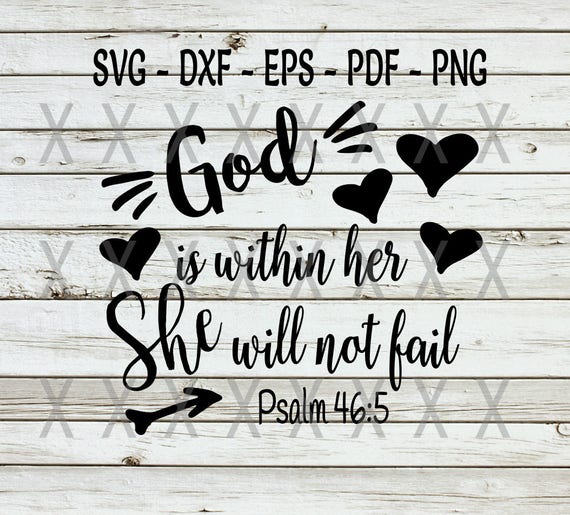 SVG ~ DXF ~ EPS ~ PDF ~ PNG
X X X X X X X X X
God
X X X X X X X X X
is within her
She will not fail
X X X X X X X X X
Psalm 46:5